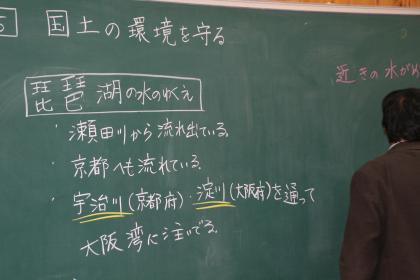 5 国土の環境を守る
近きの水がめ
琵琶湖の水のゆくえ
・瀬田川から流れ出ている。
・京都へも流れている。
・宇治川(京都府)・淀川(大阪府)を通って
大阪湾に注いでる。